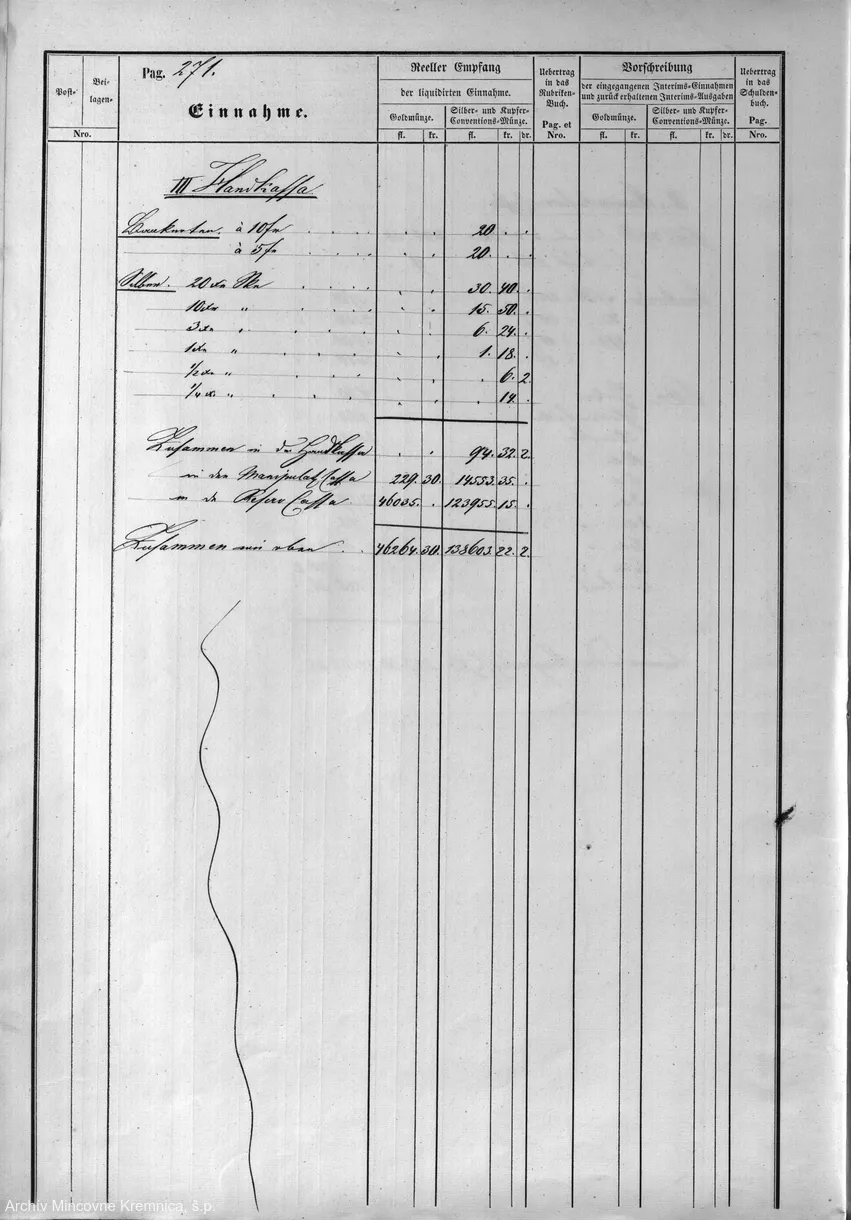 Pag. 271.
Post-
Bei-
lagen-
Nro.
Einnahme.
Reeller Empfang
der liquidirten Einnahme.
Goldmünze.
Silber- und Kupfer-
Conventions-Münze.
fl. kr. fl. kr. dr.
Uebertrag
in das
Rubriken-
Buch.
Pag. et
Nro.
Vorschreibung
der eingegangenen Interims-Einnahmen
und zurück erhaltenen Interims-Ausgaben
Goldmünze.
Silber- und Kupfer-
Conventions-Münze.
fl. kr. fl. kr. dr.
Uebertrag
in das
Schulden-
buch.
Pag.
Nro.
III Handkassa
Banknoten. à 10 fr 20 . .
à 5 fr 20. . .
Silber. 20 30. 40. .
10 " 15. 50. .
3 " 6. 24. .
1 " 1. 18. .
1/2 " . 6. 2
1/4 " . 14. .
Zusammen in der Handkassa . . 94. 32. 2
in der Manipulat Cassa 229. 30. 14553. 35. .
in de Reserv Cassa 46035. . 123955. 15. .
Zusammen wie oben . . 46264. 30. 138603. 22. 2.
Archív Mincovne Kremnica, š.p.